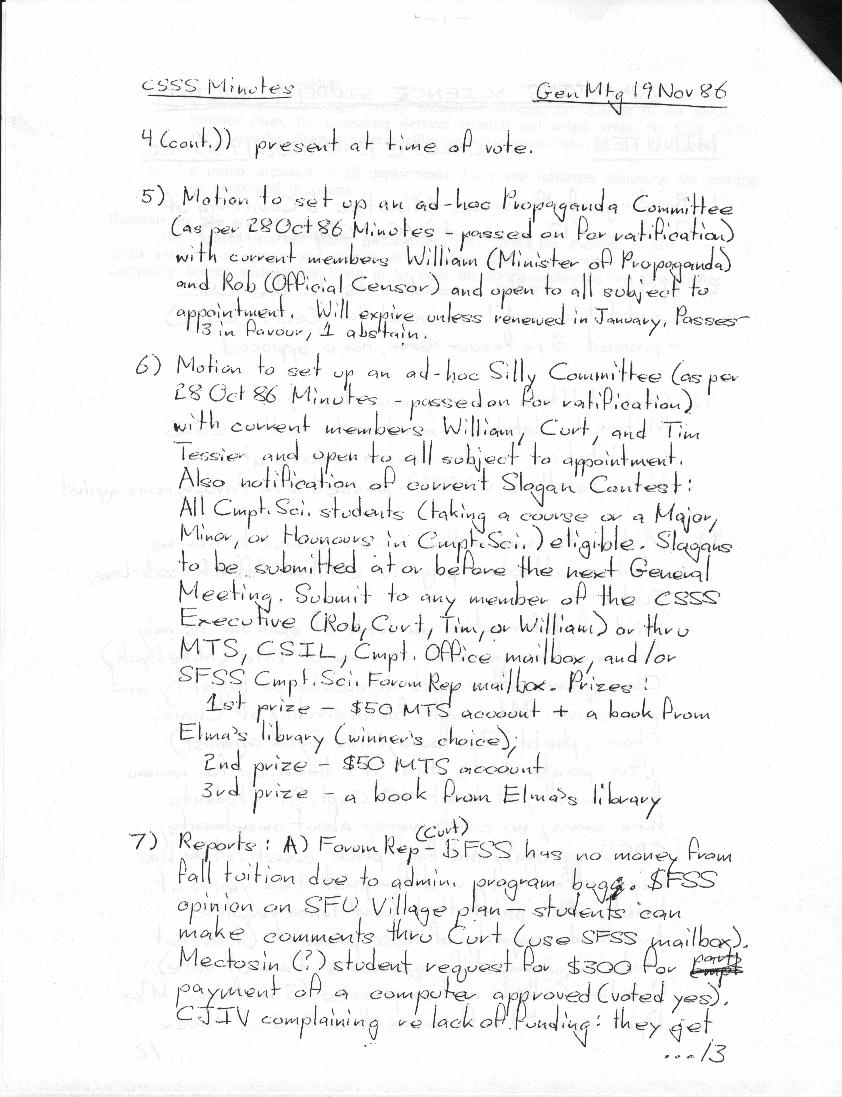 CSSS Minutes Gen Mtg 19 Nov 86
4 (cont.)) present at time of vote.
5) Motion to set up an ad-hoc Propaganda Committee
(as per 28 Oct 86 Minutes - passed on for ratification)
with current members William (Minister of Propaganda)
and Rob (Official Censor) and open to all subject to
appointment. Will expire unless renewed in January. Passes -
13 in favour, 1 abstain.
6) Motion to set up an ad-hoc Silly Committee (as per
28 Oct 86 Minutes - passed on for ratification)
with current members William, Curt, and Tim
Tessier and open to all subject to appointment.
Also notification of current Slogan Contest:
All Cmpt. Sci. students (taking a course or a Major,
Minor, or Hounours in Cmpt. Sci.) eligible. Slogans
to be submitted at or before the next General
Meeting. Submit to any member of the CSSS
Executive (Rob, Curt, Tim, or William) or thru
MTS, CSIL, Cmpt. Office mailbox, and/or
SFSS Cmpt. Sci. Forum Rep mailbox. Prizes:
1st prize - $50 MTS account + a book from
Elma's library (winner's choice);
2nd prize - $50 MTS account
3rd prize - a book from Elma's library
7) Reports: A) Forum Rep (Curt) - $FSS has no money from
fall tuition due to admin. program bugg. $FSS
opinion on SFU Village plan - students can
make comments thru Curt (use SFSS mailbox).
Mectosin (?) student request for $300 for part
payment of a computer approved (voted yes).
CJIV complaining re lack of funding: they get
.../3